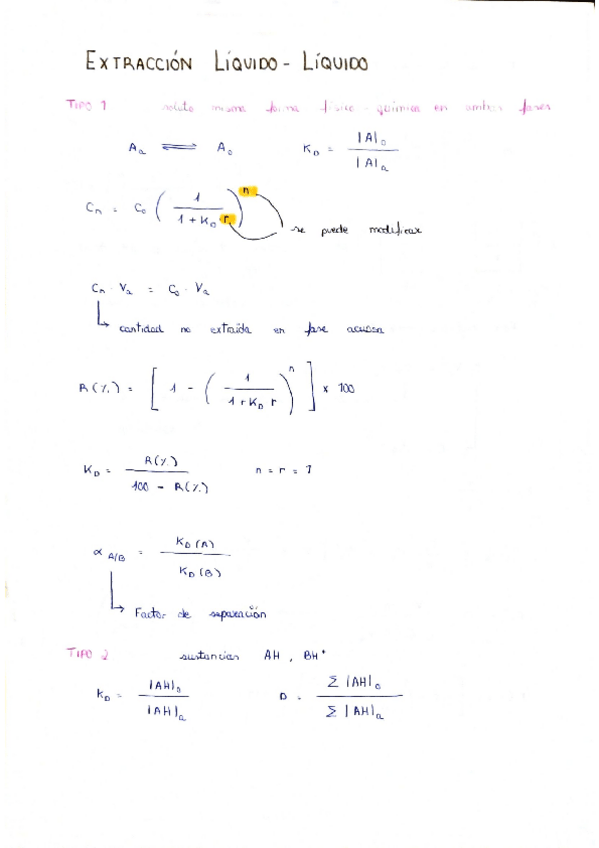 EXTRACCIÓN LÍQUIDO - LÍQUIDO
TIPO 1 soluto misma forma físico-química en ambas fases
A_a ⇌ A_o K_D = |A|_o / |A|_a
C_n = C_o ( 1 / (1 + K_D r) )^n
se puede modificar
C_n · V_a = C_o · V_a
cantidad no extraída en fase acuosa
R(%) = [ 1 - ( 1 / (1 + K_D r) )^n ] x 100
K_D = R(%) / (100 - R(%)) n = r = 1
α_A/B = K_D(A) / K_D(B)
Factor de separación
TIPO 2 sustancias AH , BH⁺
K_D = |AH|_o / |AH|_a D = Σ |AH|_o / Σ |AH|_a